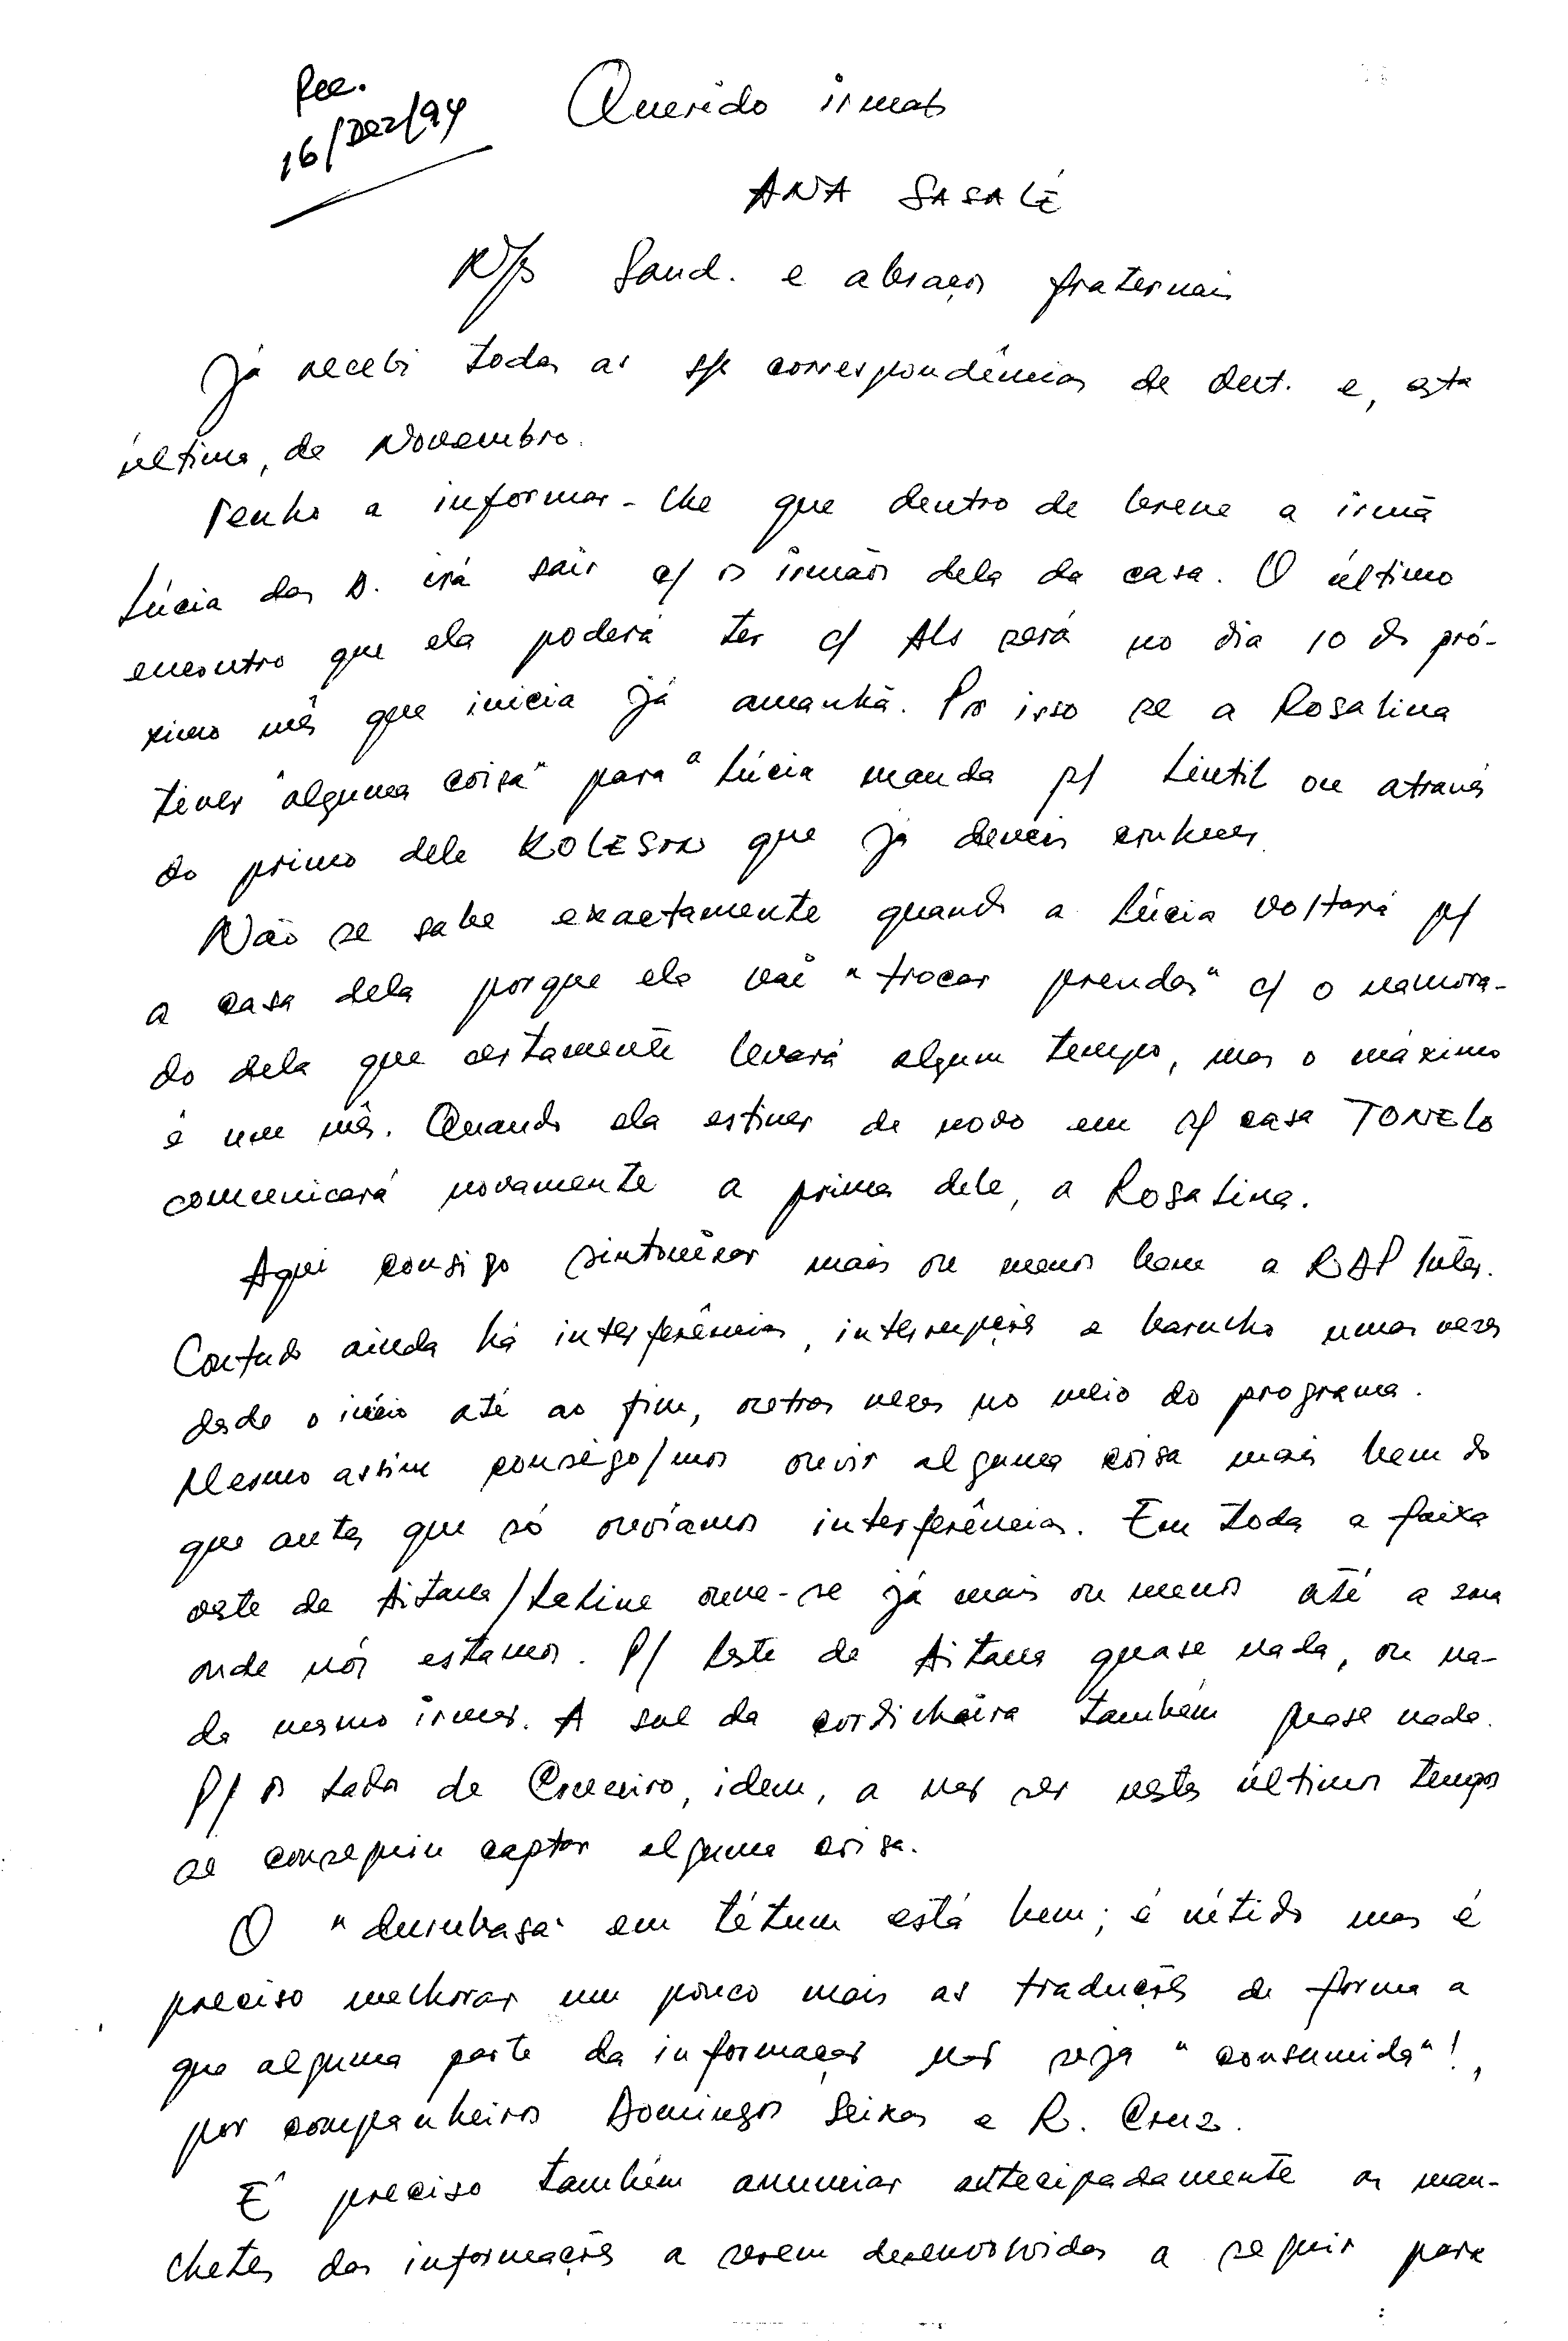 Rec.
16/Dez/94
Querido irmão
ANA SASALÉ
N/s Saud. e abraços fraternais
Já recebi todas as s/s correspondências de Out. e, esta
última, de Novembro.
Tenho a informar-lhe que dentro de breve a irmã
Lúcia dos D. irá sair c/ os irmãos dela da casa. O último
encontro que ela poderá ter c/ Als será no dia 10 do pró-
ximo mês que inicia já amanhã. Por isso se a Rosalina
tiver "alguma coisa" para a Lúcia manda p/ Lintil ou através
do primo dele KOLESON que já deveis conhecer.
Não se sabe exactamente quando a Lúcia voltará p/
a casa dela porque ela vai "trocar prendas" c/ o namora-
do dela que certamente levará algum tempo, mas o máximo
é um mês. Quando ela estiver de novo em s/ casa TONELO
comunicará novamente a prima dele, a Rosalina.
Aqui consigo sintonizar mais ou menos bem a RDP Inter.
Contudo ainda há interferências, interrupções e barulho umas vezes
desde o início até ao fim, outras vezes no meio do programa.
Mesmo assim consigo/mos ouvir alguma coisa mais bem do
que antes que só ouvíamos interferências. Em toda a faixa
oeste de Aitana/Laline ouve-se já mais ou menos até a zona
onde nós estamos. P/ leste de Aitana quase nada, ou na-
da mesmo irmão. A sul da cordilheira também quase nada.
P/ os lados de Cruzeiro, idem, a não ser nestes últimos tempos
se conseguiu captar alguma coisa.
O "durubasa" em tétum está bem; é nítido mas é
preciso melhorar um pouco mais as traduções de forma a
que alguma parte da informação não seja "consumida"!,
por companheiros Domingos Seixas e R. Cruz.
É preciso também anunciar antecipadamente as man-
chetes das informações a serem desenvolvidas a seguir para